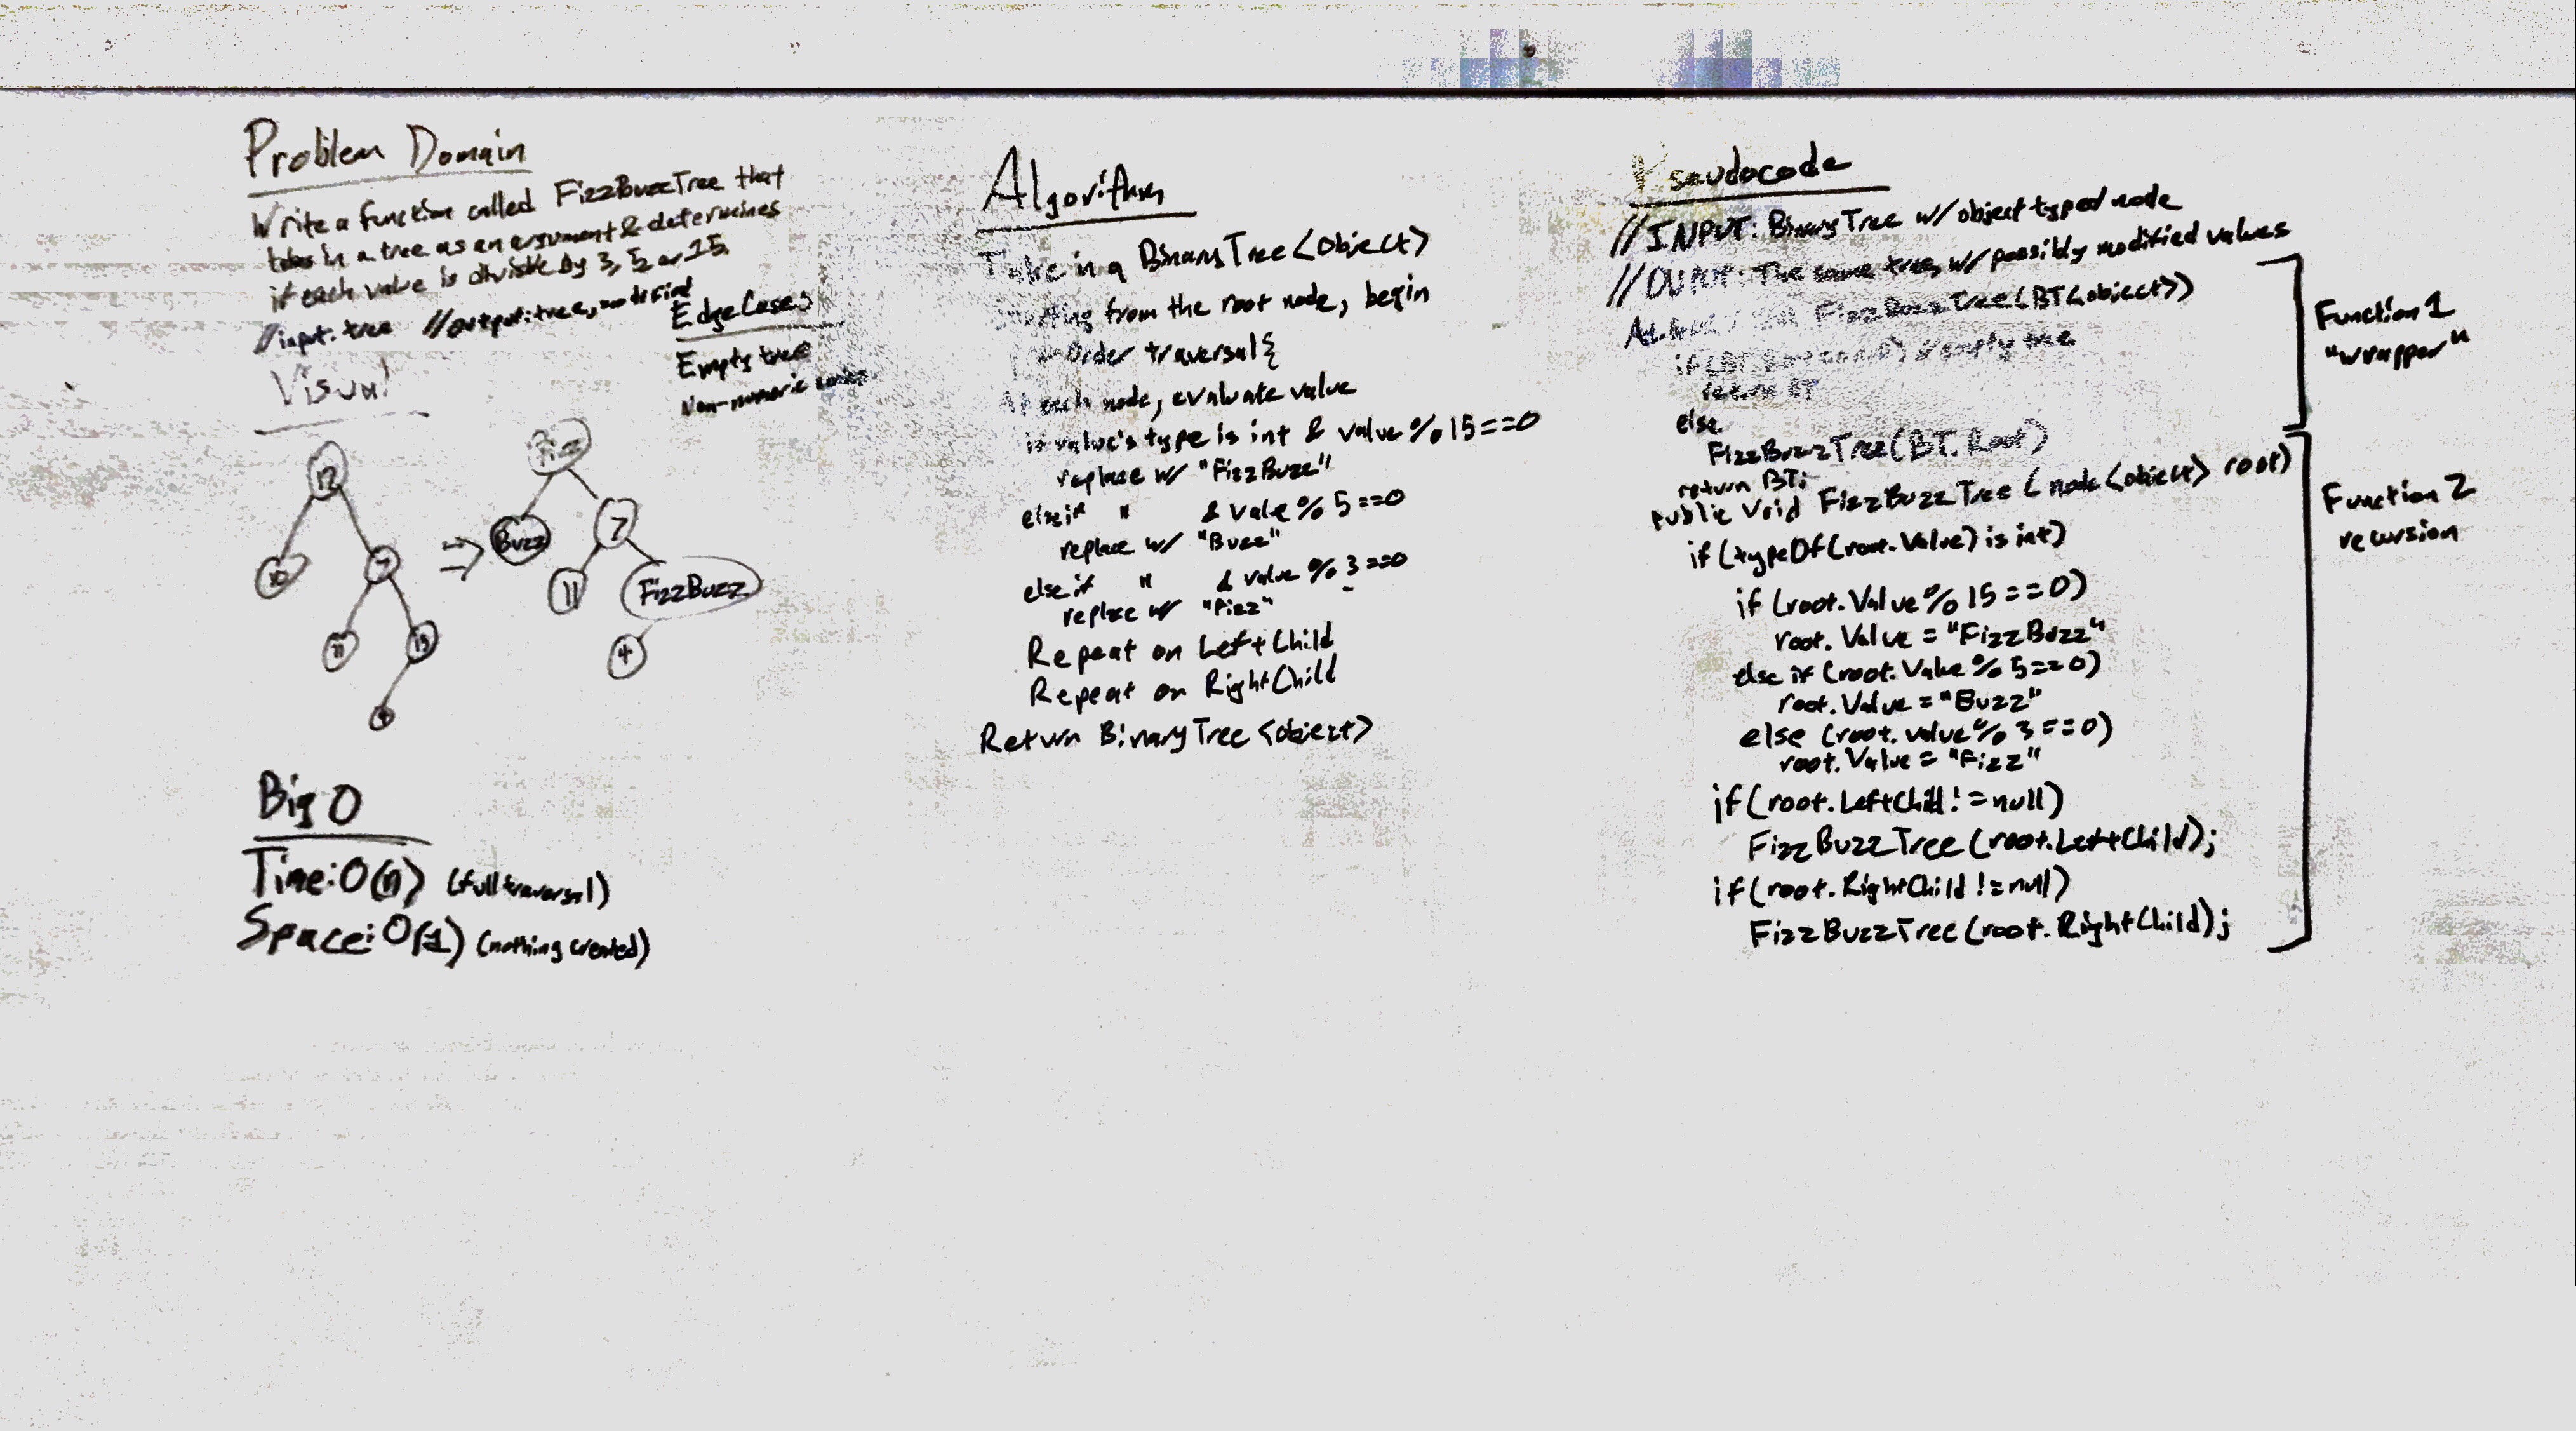 Problem Domain
Write a function called FizzBuzzTree that
takes in a tree as an argument & determines
if each value is divisble by 3, 5 or 15.
//input: tree //output: tree, modified
Edge Cases
Empty tree
Non-numeric
Visual
12
10
7
11
15
4
=>
Fizz
Buzz
7
11
FizzBuzz
4
Big O
Time: O(n) (full traversal)
Space: O(1) (nothing created)
Algorithm
Take in a BinaryTree<Object>
from the root node, begin
Order traversal{
At each node, evaluate value
if value's type is int & value % 15 == 0
replace w/ "FizzBuzz"
else if " & value % 5 == 0
replace w/ "Buzz"
else if " & value % 3 == 0
replace w/ "Fizz"
Repeat on LeftChild
Repeat on RightChild
Return BinaryTree<object>
Pseudocode
//INPUT: BinaryTree w/ object typed node
//OUTPUT: The same tree, w/ possibly modified values
FizzBuzzTree(BT<object>)
if // empty tree
return BT
else
FizzBuzzTree(BT.Root)
return BT;
public void FizzBuzzTree (node<object> root)
if (typeOf(root.Value) is int)
if (root.Value % 15 == 0)
root.Value = "FizzBuzz"
else if (root.Value % 5 == 0)
root.Value = "Buzz"
else (root.value % 3 == 0)
root.Value = "Fizz"
if (root.LeftChild != null)
FizzBuzzTree (root.LeftChild);
if (root.RightChild != null)
FizzBuzzTree (root.RightChild);
Function 1
"wrapper"
Function 2
recursion